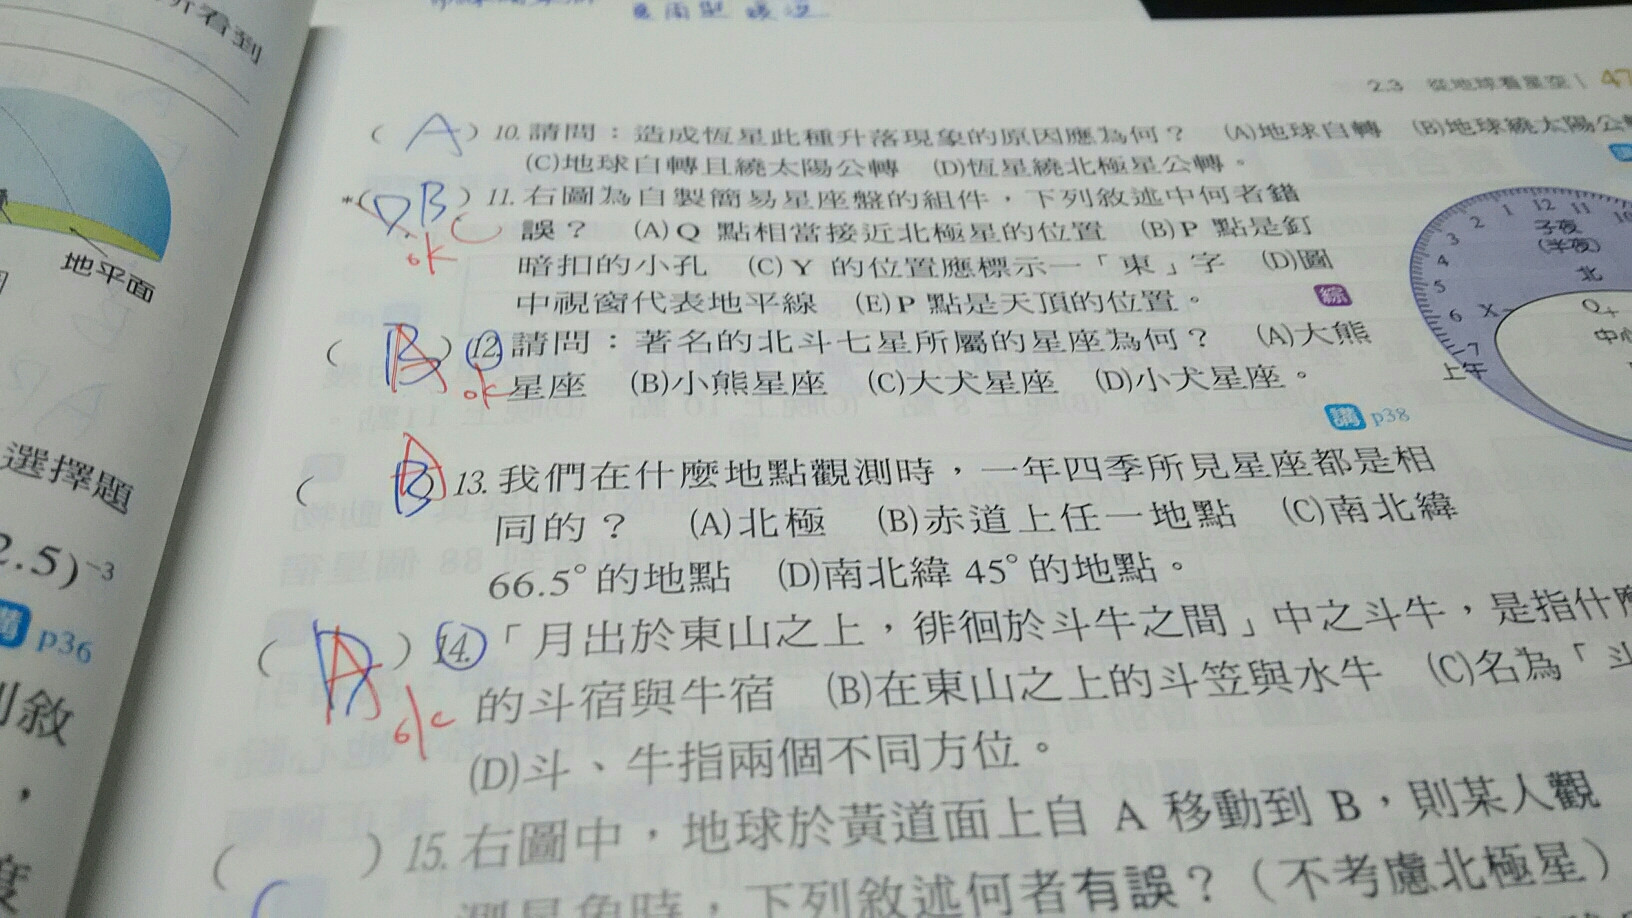 所看到
地平面
選擇題
2.5)⁻³
講 p36
列敘
,
度
2.3 從地球看星空 | 47
( A ) 10. 請問:造成恆星此種升落現象的原因應為何? (A)地球自轉 (B)地球繞太陽公轉
(C)地球自轉且繞太陽公轉 (D)恆星繞北極星公轉。
*( D B C ) 11. 右圖為自製簡易星座盤的組件,下列敘述中何者錯
ok 誤? (A)Q 點相當接近北極星的位置 (B)P 點是釘
暗扣的小孔 (C)Y 的位置應標示一「東」字 (D)圖
中視窗代表地平線 (E)P 點是天頂的位置。 綜
( B A ) 12. 請問:著名的北斗七星所屬的星座為何? (A)大熊
ok 星座 (B)小熊星座 (C)大犬星座 (D)小犬星座。
講 p38
( B A ) 13. 我們在什麼地點觀測時,一年四季所見星座都是相
同的? (A)北極 (B)赤道上任一地點 (C)南北緯
66.5°的地點 (D)南北緯 45°的地點。
( D A ) 14. 「月出於東山之上,徘徊於斗牛之間」中之斗牛,是指什麼
ok 的斗宿與牛宿 (B)在東山之上的斗笠與水牛 (C)名為「斗
(D)斗、牛指兩個不同方位。
( ) 15. 右圖中,地球於黃道面上自 A 移動到 B,則某人觀
測星象時,下列敘述何者有誤?(不考慮北極星)
3 2 1 12 11 10
4
5
6
7
子夜
(半夜)
北
X
Q
中心
上午